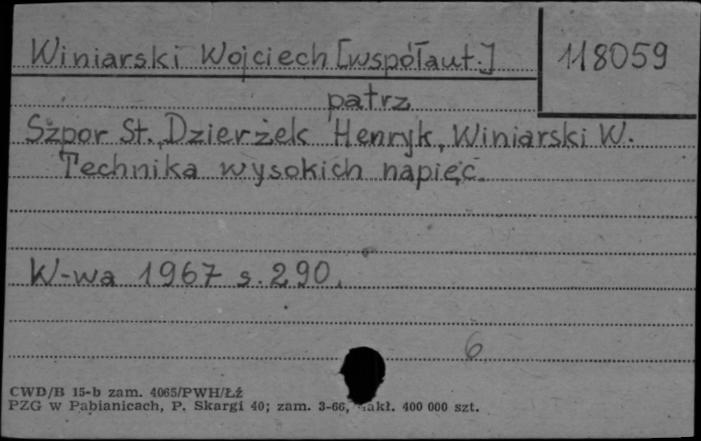 Winiarski Wojciech [współaut.]
118059
patrz
Szpor St., Dzierżek Henryk, Winiarski W.
Technika wysokich napięć.
W-wa 1967 s. 290.
6
CWD/B 15-b zam. 4065/PWH/Łź
PZG w Pabianicach, P. Skargi 40; zam. 3-66, nakł. 400 000 szt.